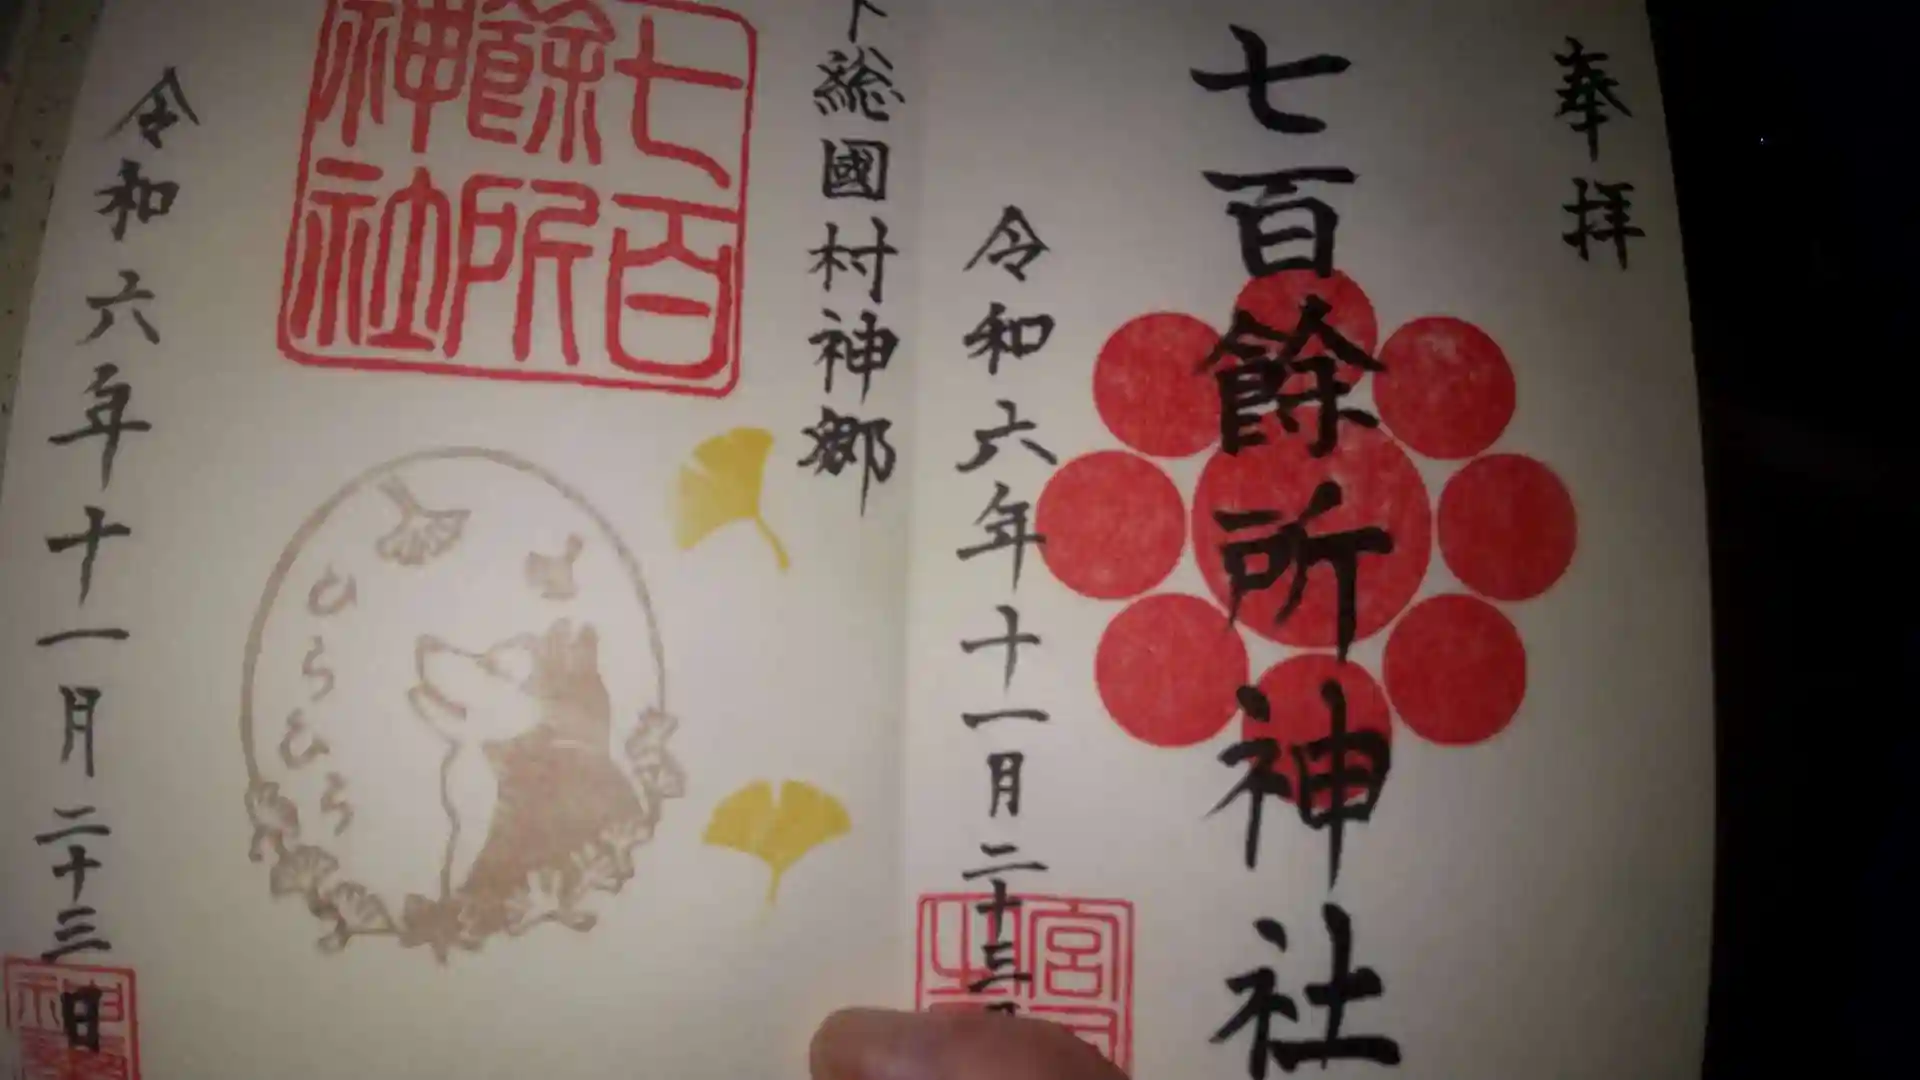 奉拝
七百餘所神社
令和六年十一月二十三
下総國村神郷
七百
餘所
神社
ひらひら
令和六年十一月二十三日